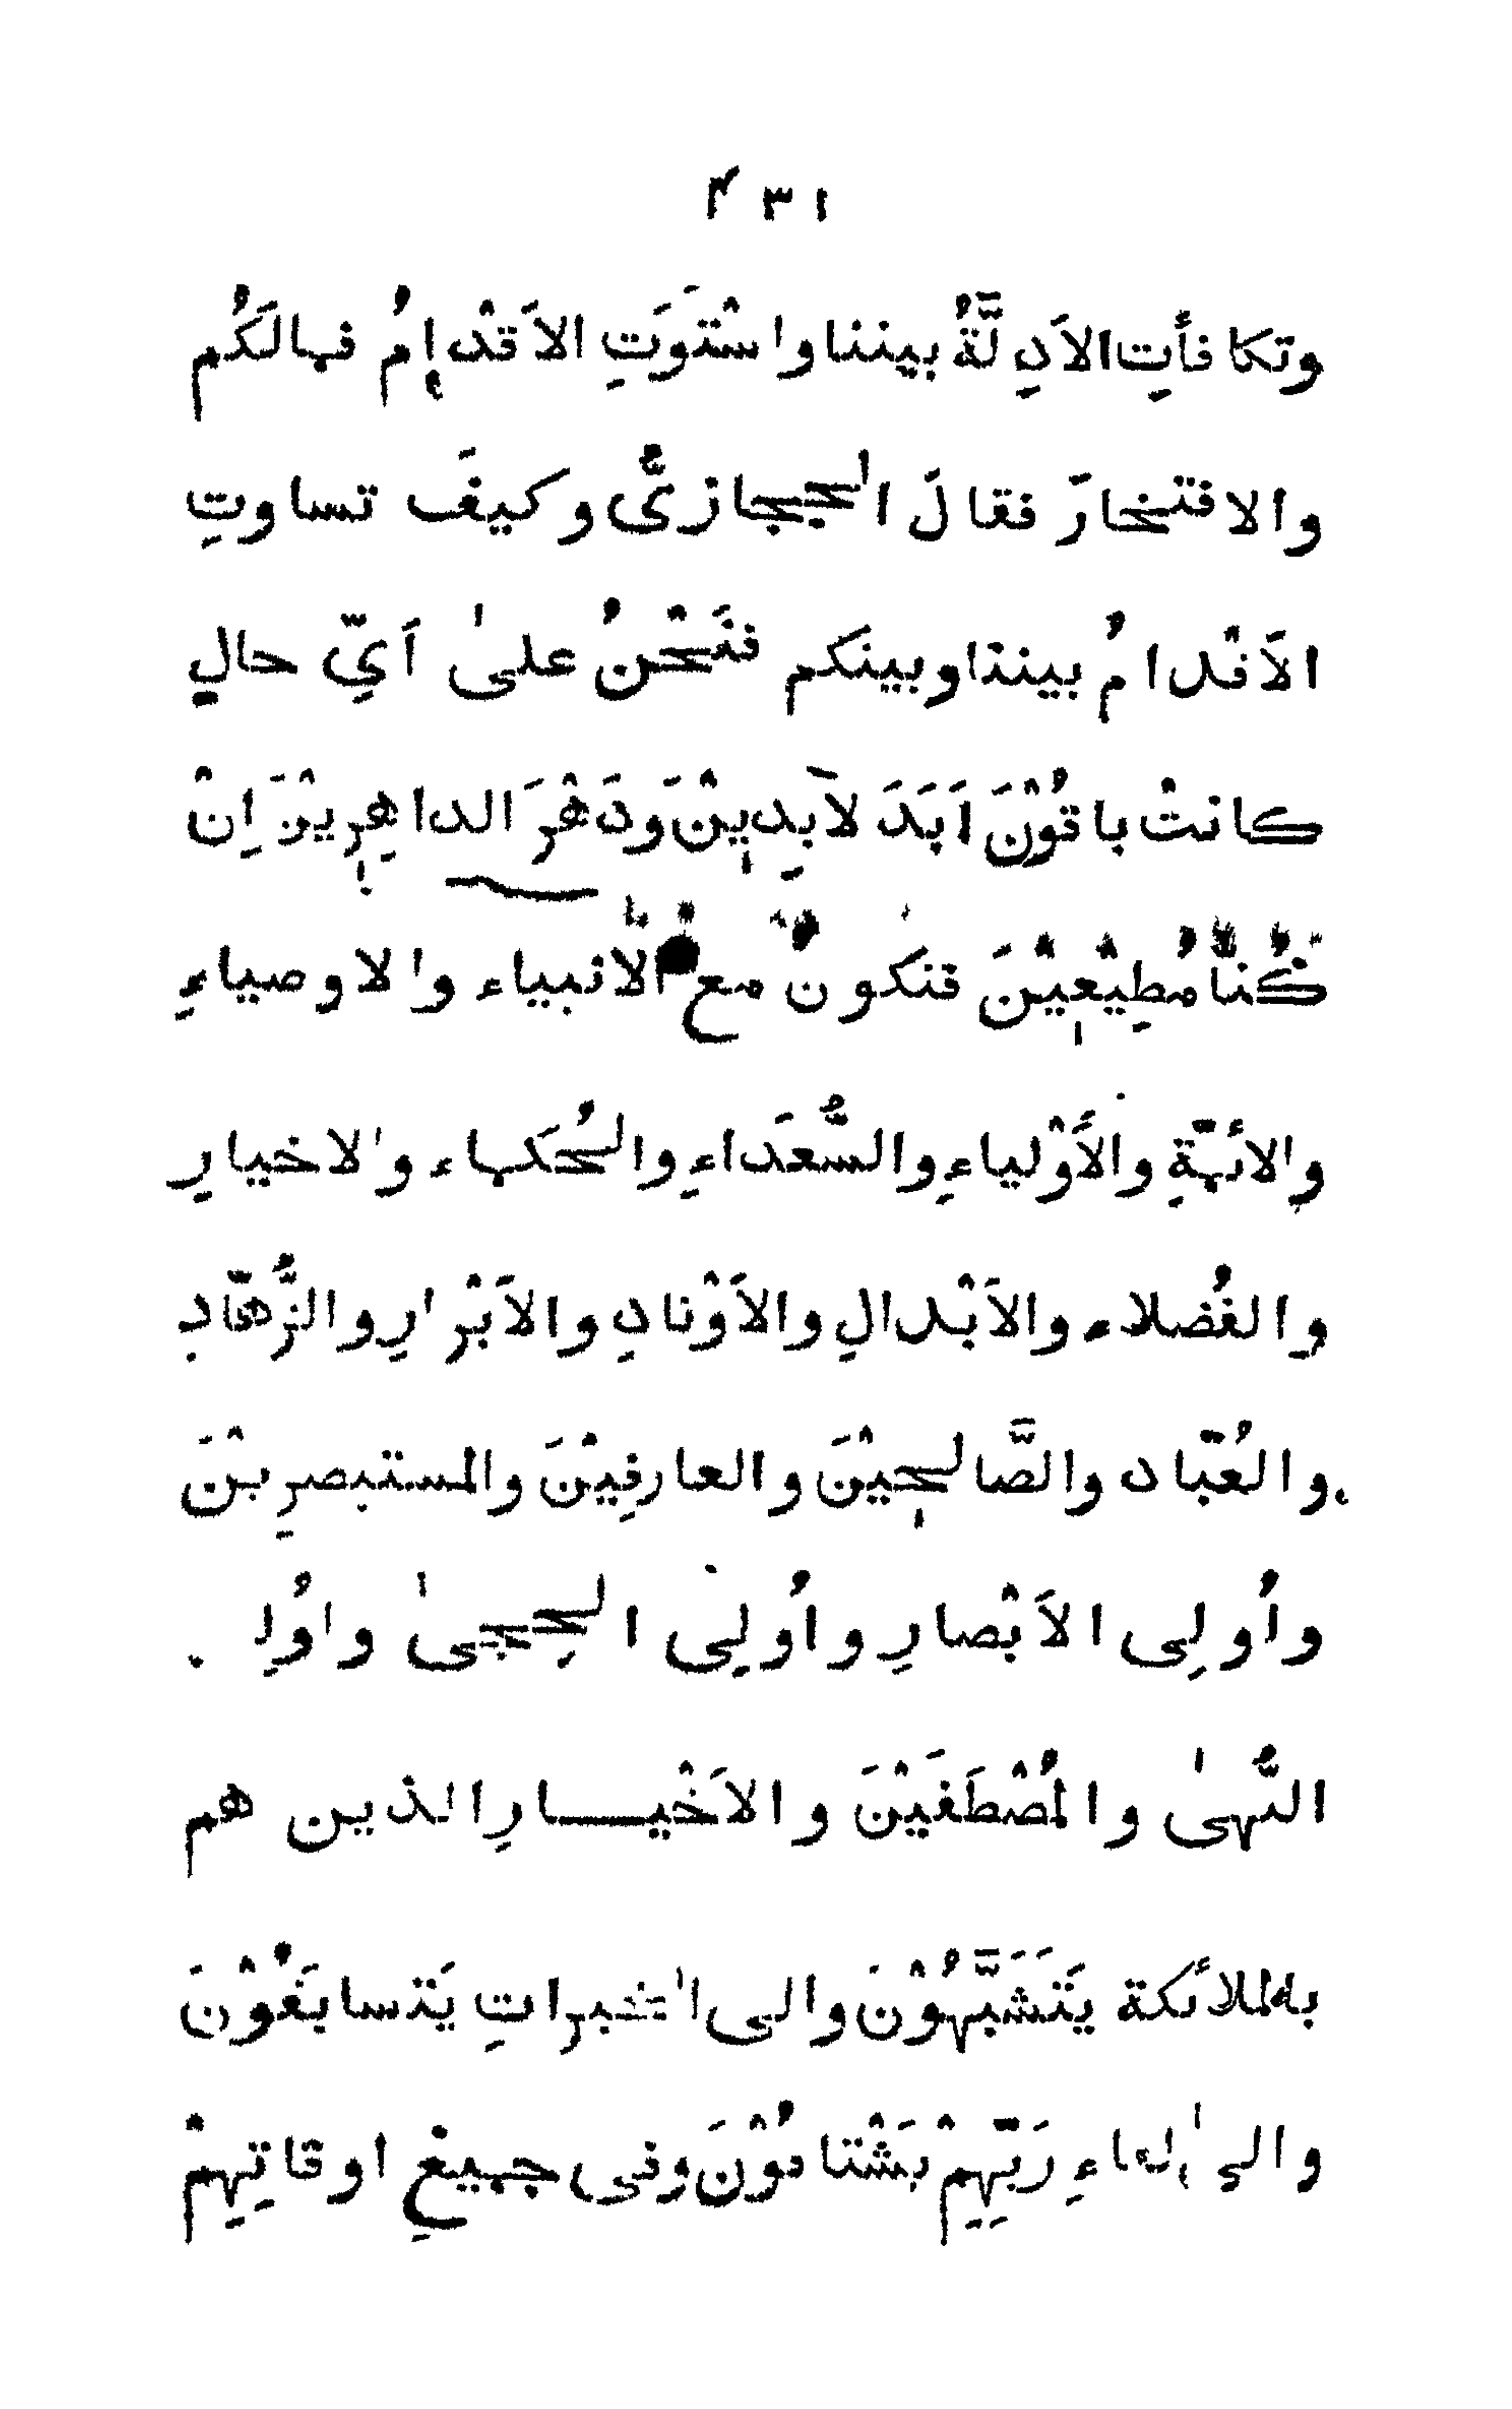 ۴۳۱
وتكافأتِ الاَدِلَّةُ بيننا واسْتَوَتِ الاَقْدامُ فما لَكُم
والافتخارَ فقالَ الحجازىُّ وكيفَ تساوتِ
الاَقْدامُ بيننا وبينكم فنَحْنُ علىٰ اَيِّ حالٍ
كانتْ باقُوْنَ اَبَدَ لآبِدِيْنَ ودَهْرَ الداهِرِيْنَ اِنْ
كُنّا مُطِيْعِيْنَ فنكونُ مع الانبياء والاوصياءِ
والائمّةِ والاَوْلياءِ والسُّعَداءِ والحُكَماء والاخيارِ
والفُضلاء والاَبْدالِ والاَوْتادِ والاَبْرارِ والزُّهّادِ
والعُبّاد والصَّالحِيْنَ والعارِفِيْنَ والمستبصرِيْنَ
واُولِى الاَبْصارِ واُولِى الحِجىٰ واُولِ
النُّهىٰ والمُصْطَفَيْنَ والاَخْيارِ الذين هم
بالملائكة يَتَشَبَّهُوْنَ والى الخيراتِ يَتسابَقُوْنَ
والىٰ لقاءِ رَبِّهِمْ يَشْتاقُوْنَ وفى جميعِ اوقاتِهِمْ